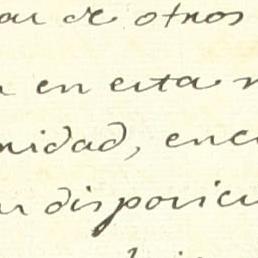 ar de otros
en esta
nidad, enc
disposici